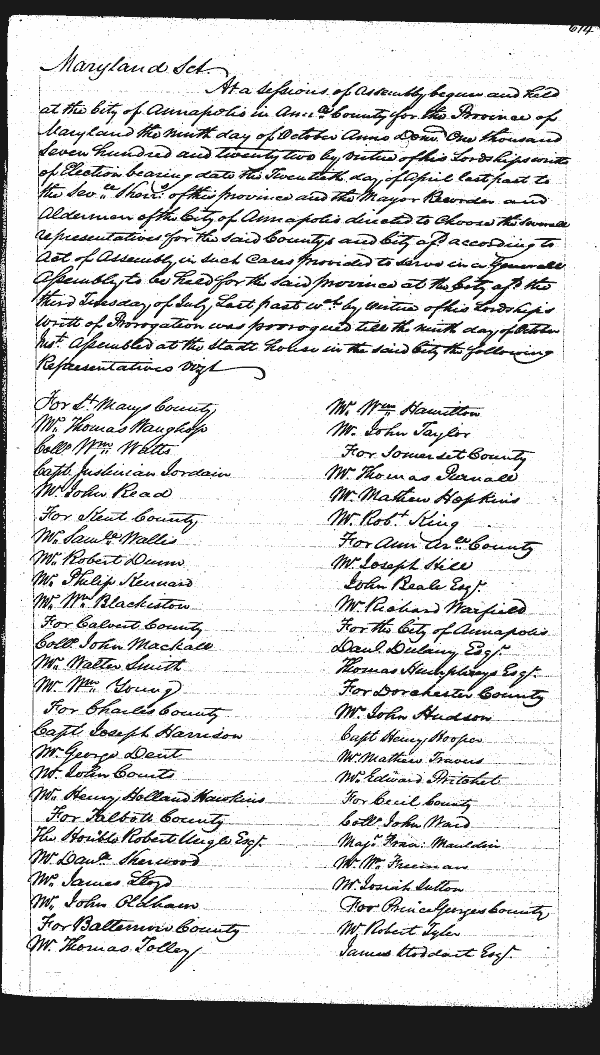 614
Maryland Sct.
At a Sessions of Assembly begun and held
at the City of Annapolis in Ann ll County for the Province of
Maryland the ninth day of October Anno Domi. One thousand
Seven hundred and twenty two by virtue of his Lordships writts
of Election bearing date the Twentieth day of April last past to
the Sev.ll Sherrs. of this province and the Mayor Recorder and
Aldermen of the City of Annapolis directed to Choose the Severall
representatives for the said Countys and City afd. according to
Act of Assembly in such Cases Provided to serve in a Generall
Assembly to be held for the said province at the City afd. the
third Tuesday of July Last past wch. by virtue of his Lordship's
writt of Prorogation was prorogued till the ninth day of October
Inst. Assembled at the Stadt house in the said City the following
Representatives vizt
For St. Marys County
Mr. Thomas Waughop
Collo. Wm. Watts
Capt. Justinian Jordain
Mr. John Read
For Kent County
Mr. Samll. Wallis
Mr. Robert Dunn
Mr. Philip Kennard
Mr. Wm. Blackiston
For Calvert County
Collo. John Mackall
Mr. Walter Smith
Mr. Wm. Young
For Charles County
Capt. Joseph Harrison
Mr. George Dent
Mr. John Courts
Mr. Henry Holland Hawkins
For Talbott County
The Honble Robert Ungle Esqr.
Mr. Danll. Sherwood
Mr. James Lloyd
Mr. John Oldham
For Baltemore County
Mr. Thomas Tolley
Mr. Wm. Hamilton
Mr. John Taylor
For Somerset County
Mr. Thomas Purnall
Mr. Mathew Hopkins
Mr. Robt. King
For Ann Arll County
Mr. Joseph Hill
John Beale Esqr.
Mr. Richard Warfield
For the City of Annapolis
Danl. Dulany Esqr.
Thomas Humphreys Esqr.
For Dorchester County
Mr. John Hudson
Capt Henry Hooper
Mr. Mathew Travers
Mr. Edward Pritchet
For Cecil County
Collo. John Ward
Majr. Fran: Mauldin
Mr. Wm. Freeman
Mr. Josiah Sutton
For Prince Georges County
Mr. Robert Tyler
James Stoddart Esqr.